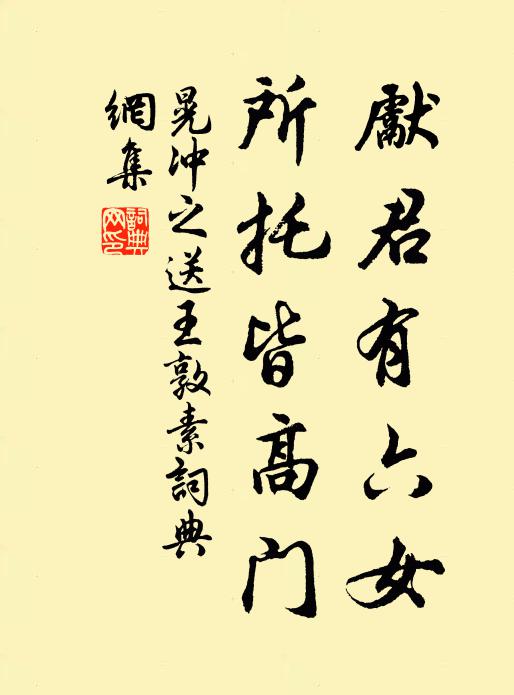 獻君有六女
所托皆高门
晁冲之送王敦素詞典
網集
詞典网印